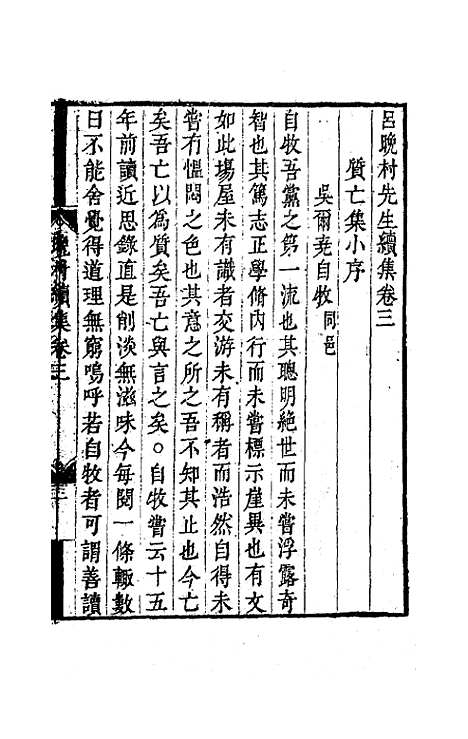 呂晚村先生續集卷三
質亡集小序
吳爾堯自牧同邑
自牧吾黨之第一流也其聰明絕世而未嘗浮露奇
智也其篤志正學脩內行而未嘗標示崖異也有文
如此場屋未有識者交游未有稱者而浩然自得未
嘗有慍悶之色也其意之所之吾不知其止也今亡
矣吾亡以為質矣吾亡與言之矣。自牧嘗云十五
年前讀近思錄直是削淡無滋味今每閱一條輒數
日不能舍覺得道理無窮嗚呼若自牧者可謂善讀
晚村續集卷三